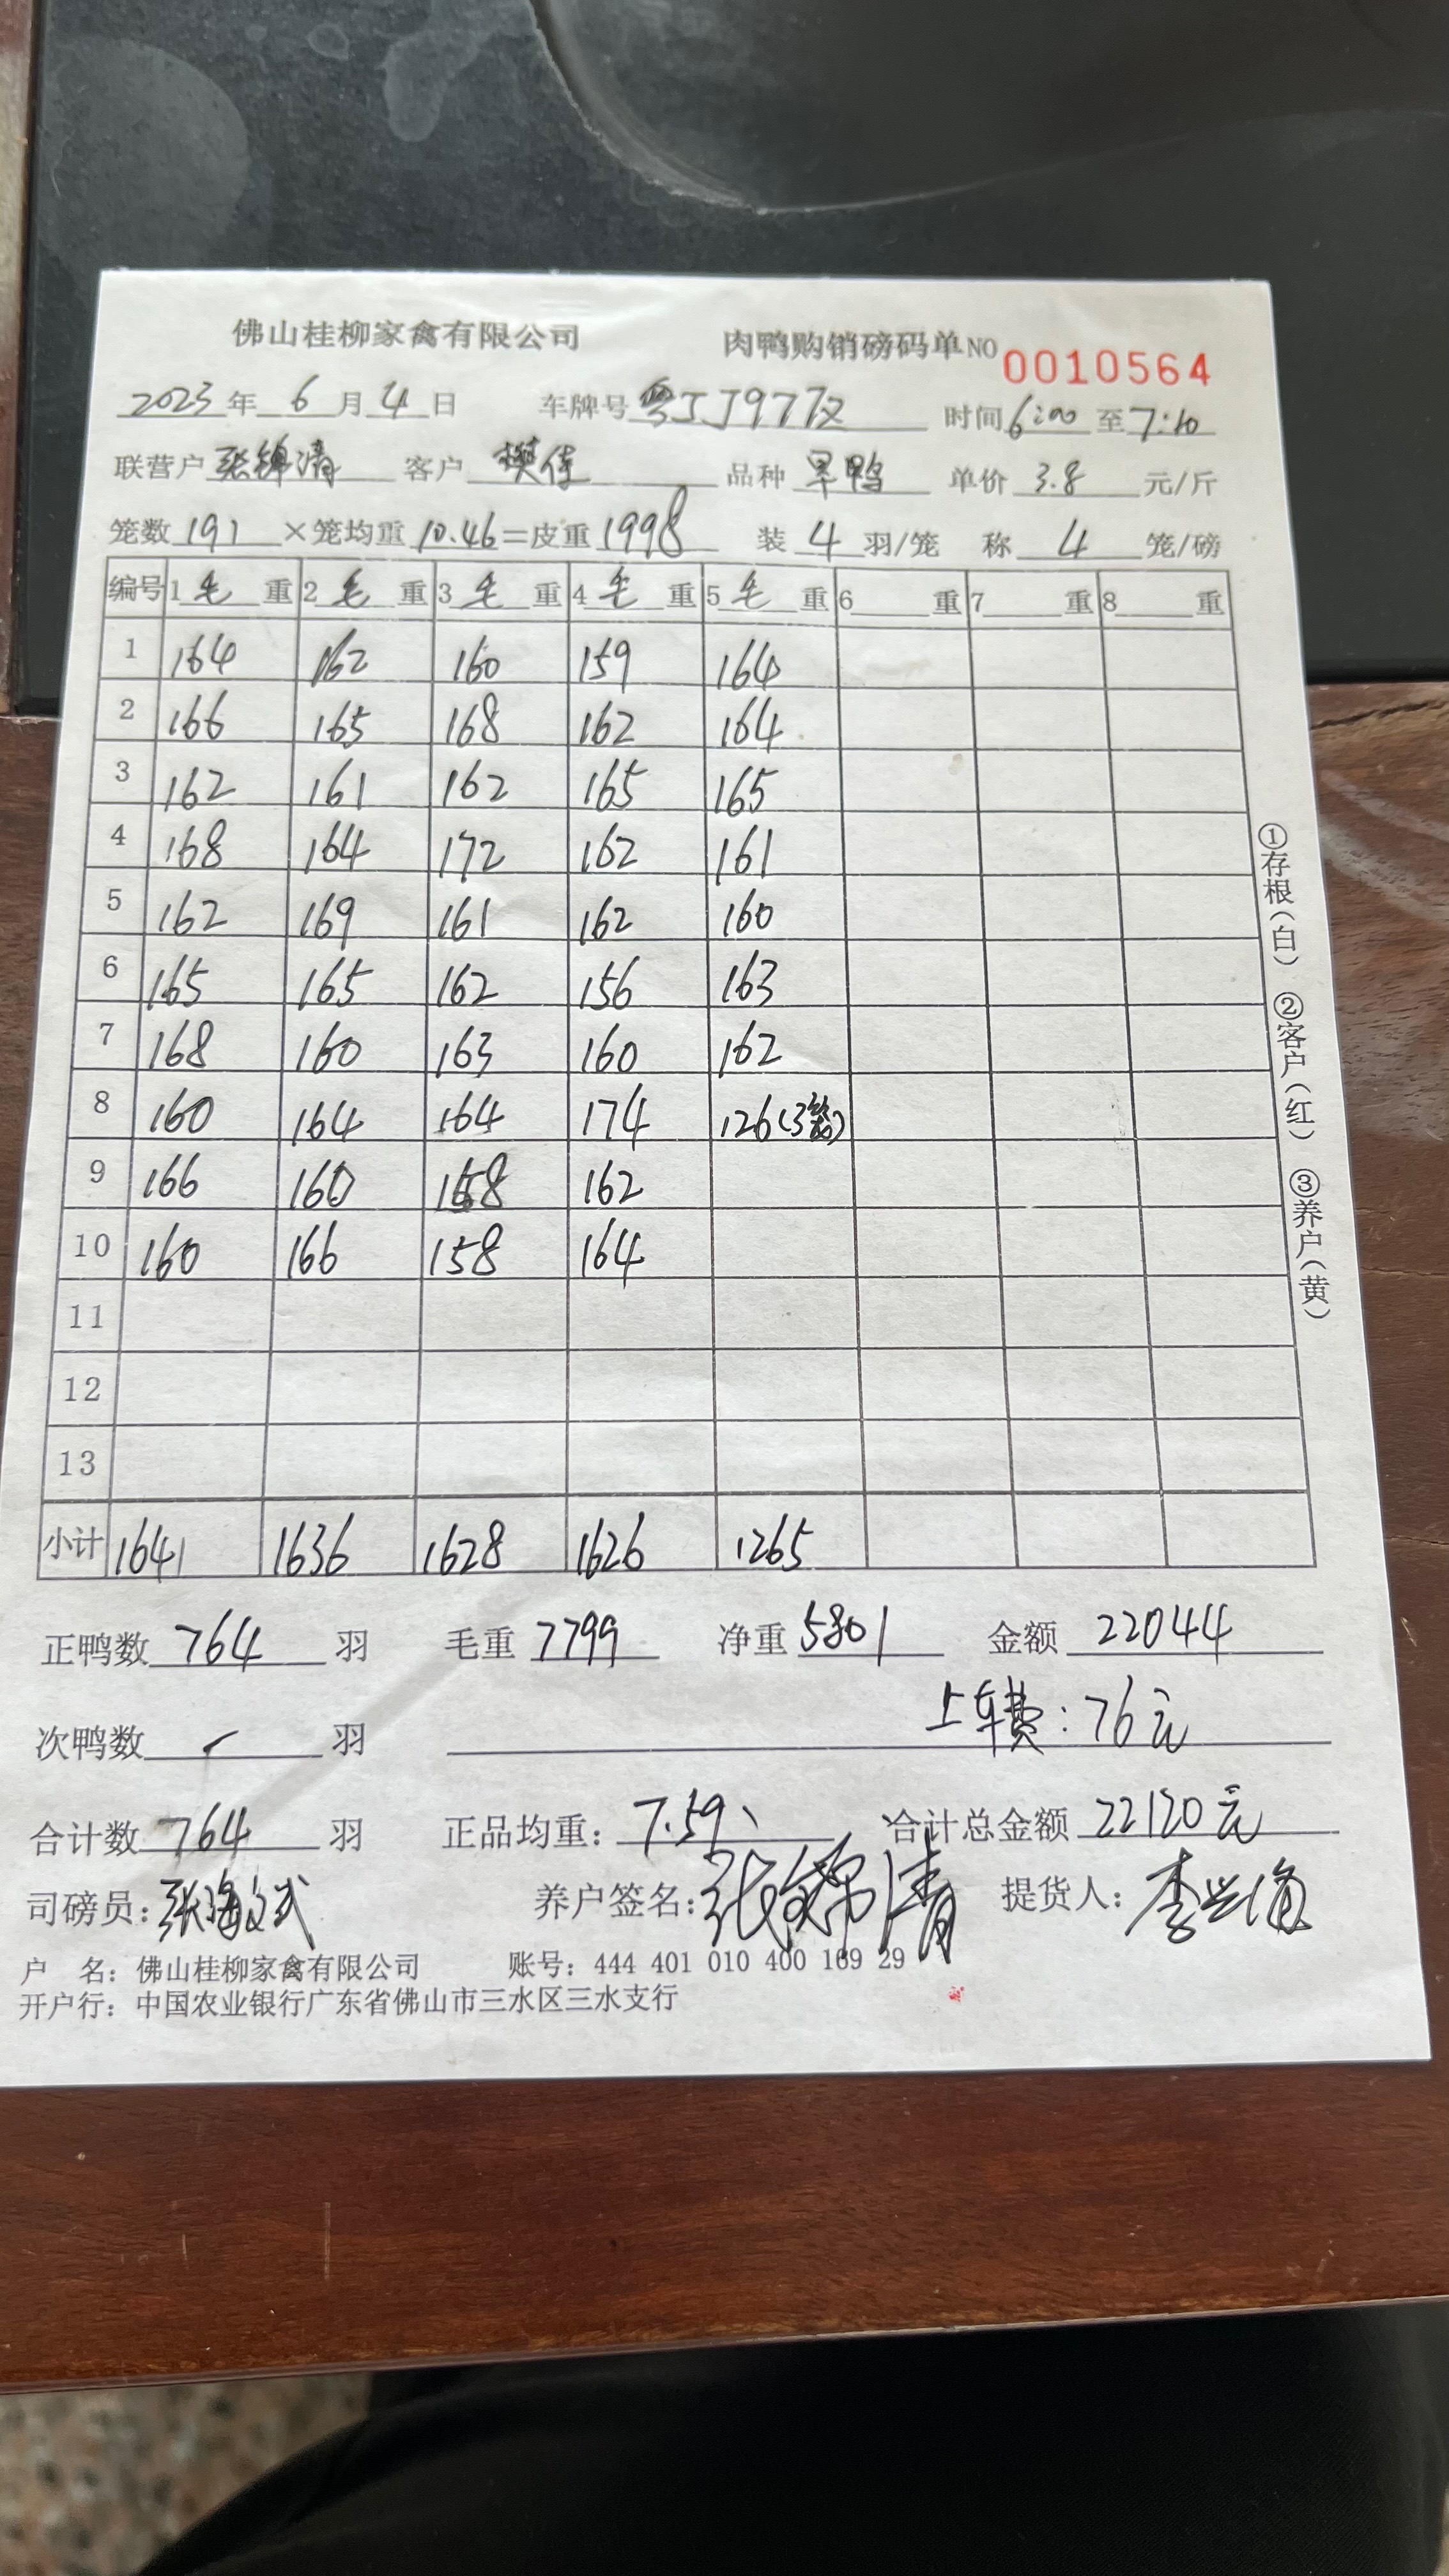 佛山桂柳家禽有限公司 肉鸭购销磅码单NO 0010564
2023年 6 月 4 日 车牌号 粤JJ977 时间 6:00 至 7:10
联营户 张锦清 客户 樊佳 品种 旱鸭 单价 3.8 元/斤
笼数 191 ×笼均重 10.46 =皮重 1998 装 4 羽/笼 称 4 笼/磅
编号 1 毛 重 2 毛 重 3 毛 重 4 毛 重 5 毛 重 6 重 7 重 8 重
1 164 162 160 159 164
2 166 165 168 162 164
3 162 161 162 165 165
4 168 164 172 162 161
5 162 169 161 162 160
6 165 165 162 156 163
7 168 160 163 160 162
8 160 164 164 174 126(3笼)
9 166 160 158 162
10 160 166 158 164
11
12
13
小计 1641 1636 1628 1626 1265
正鸭数 764 羽 毛重 7799 净重 5801 金额 22044
上车费:76元
次鸭数 羽
合计数 764 羽 正品均重: 7.59 合计总金额 22120元
司磅员:张海 养户签名:张锦清 提货人:李
户 名: 佛山桂柳家禽有限公司 账号: 444 401 010 400 169 29
开户行: 中国农业银行广东省佛山市三水区三水支行
①存根(白) ②客户(红) ③养户(黄)